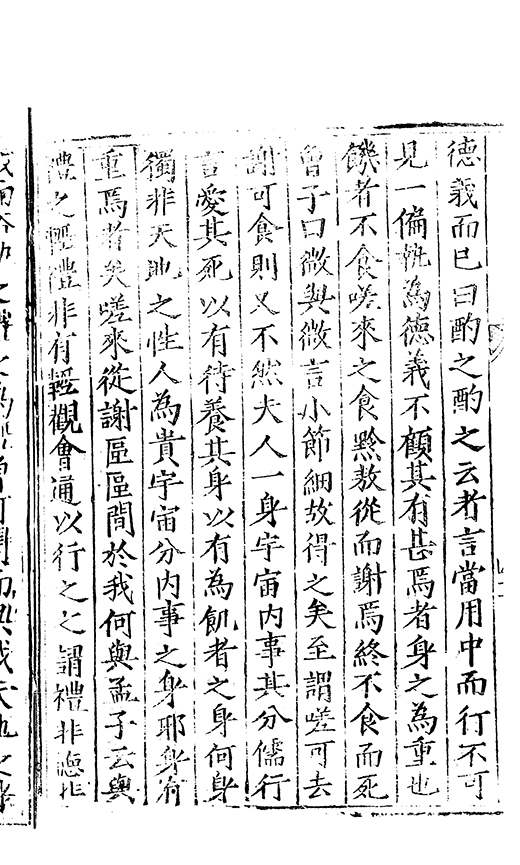 德義而已曰酌之酌之云者言當用中而行不可
見一偏執為德義不顧其有甚焉者身之為重也
饑者不食嗟來之食黔敖從而謝焉終不食而死
曾子曰微與微言小節細故得之矣至謂嗟可去
謝可食則又不然夫人一身宇宙内事其分儒行
言愛其死以有待養其身以有為飢者之身何身
獨非天地之性人為貴宇宙分内事之身耶身有
重焉者矣嗟來從謝區區間於我何與孟子云與
禮之輕禮非有輕觀會通以行之之謂禮非德非